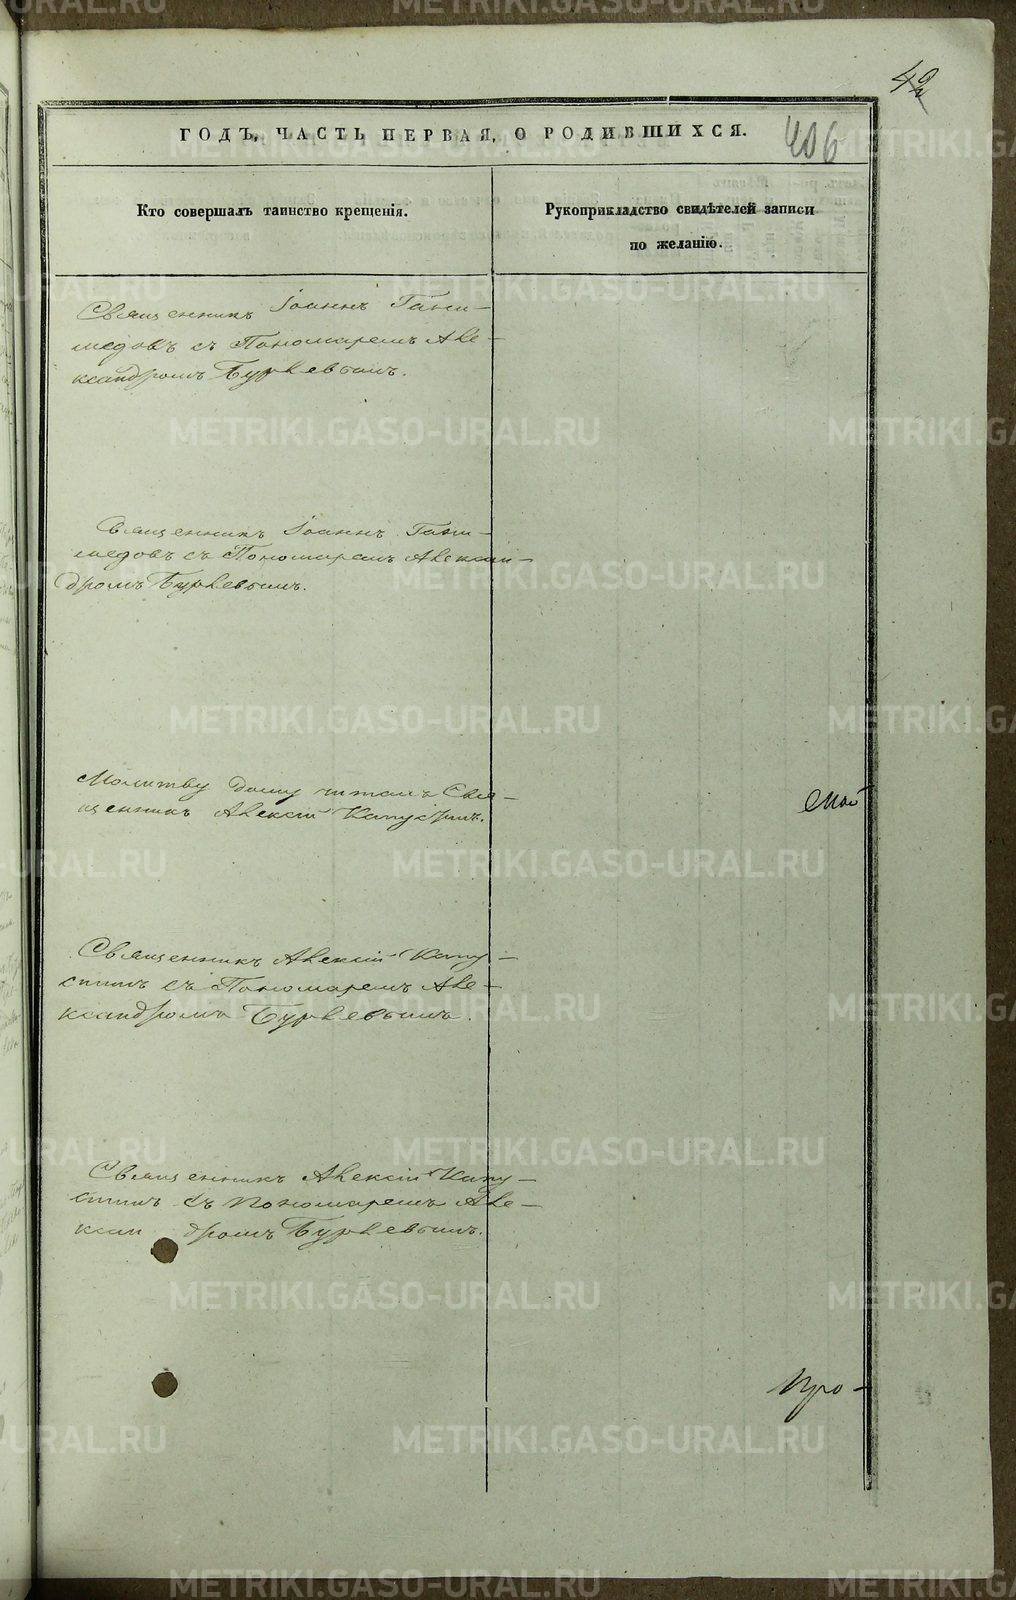 406
ГОДЪ, ЧАСТЬ ПЕРВАЯ, О РОДИВШИХСЯ.
Кто совершалъ таинство крещенія.
Рукоприкладство свидѣтелей записи
по желанію.
Священникъ Іоаннъ Гани-
медовъ съ Пономаремъ Але-
ксандромъ Бурлевымъ.
Священникъ Іоаннъ Гани-
медовъ съ Пономаремъ Алексан-
дромъ Бурлевымъ.
Молитву дому читалъ Свя-
щенникъ Алексій Капустинъ.
Священникъ Алексій Капу-
стинъ съ Пономаремъ Але-
ксандромъ Бурлевымъ.
Священникъ Алексій Капу-
стинъ съ Пономаремъ Але-
ксандромъ Бурлевымъ.
METRIKI.GASO-URAL.RU